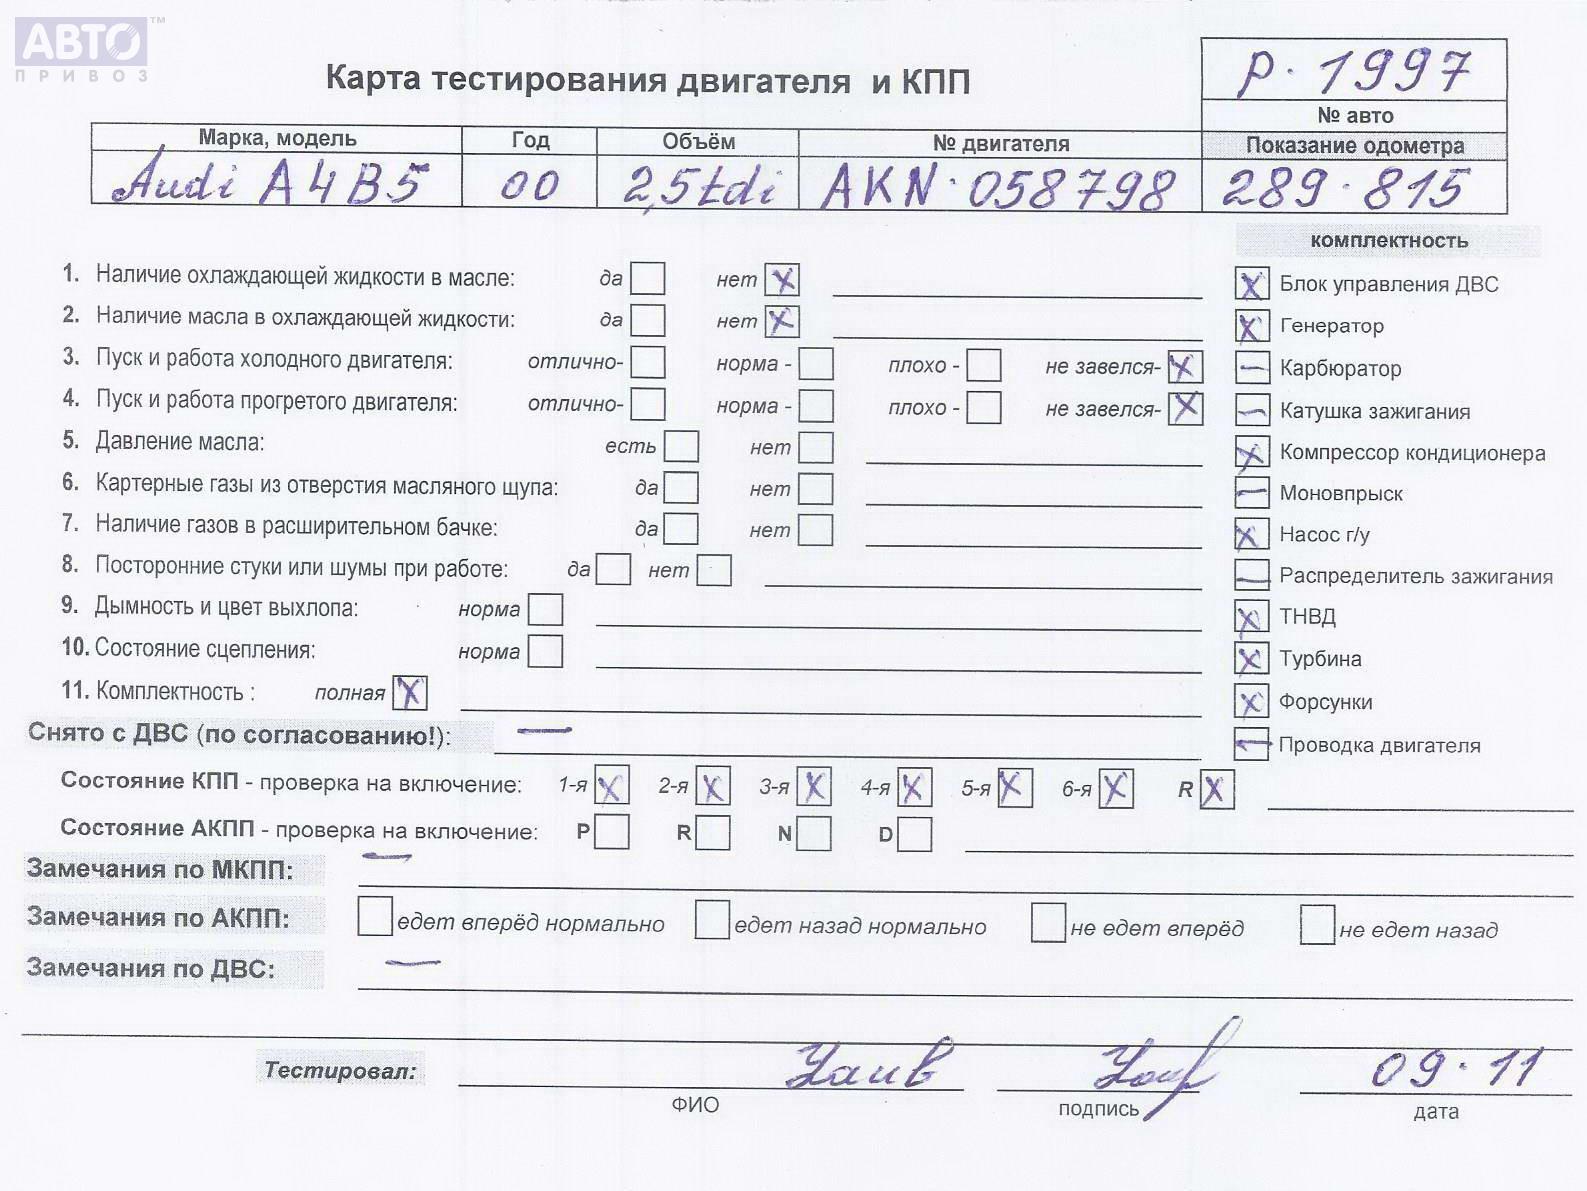 АВТО™
ПРИВОЗ
Карта тестирования двигателя и КПП
р. 1997
№ авто
Марка, модель Год Объём № двигателя Показание одометра
Audi A4B5 00 2,5tdi AKN·058798 289·815
комплектность
1. Наличие охлаждающей жидкости в масле: да нет X
Блок управления ДВС
2. Наличие масла в охлаждающей жидкости: да нет X
Генератор
3. Пуск и работа холодного двигателя: отлично- норма - плохо - не завелся- X
Карбюратор
4. Пуск и работа прогретого двигателя: отлично- норма - плохо - не завелся- X
Катушка зажигания
5. Давление масла: есть нет
Компрессор кондиционера
6. Картерные газы из отверстия масляного щупа: да нет
Моновпрыск
7. Наличие газов в расширительном бачке: да нет
Насос г/у
8. Посторонние стуки или шумы при работе: да нет
Распределитель зажигания
9. Дымность и цвет выхлопа: норма
ТНВД
10. Состояние сцепления: норма
Турбина
11. Комплектность : полная X
Форсунки
Снято с ДВС (по согласованию!): —
Проводка двигателя
Состояние КПП - проверка на включение: 1-я X 2-я X 3-я X 4-я X 5-я X 6-я X R X
Состояние АКПП - проверка на включение: P R N D
Замечания по МКПП: —
Замечания по АКПП: едет вперёд нормально едет назад нормально не едет вперёд не едет назад
Замечания по ДВС: —
Тестировал: 09·11
ФИО подпись дата